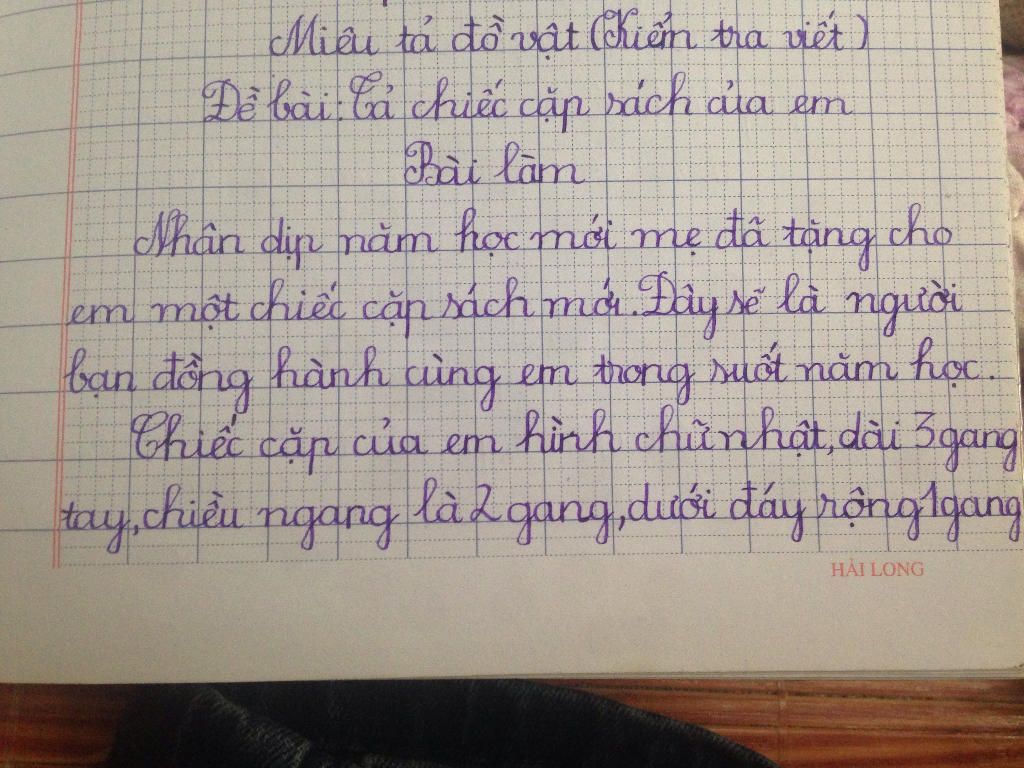 Miêu tả đồ vật (Kiểm tra viết)
Đề bài: Tả chiếc cặp sách của em
Bài làm
Nhân dịp năm học mới mẹ đã tặng cho
em một chiếc cặp sách mới. Đây sẽ là người
bạn đồng hành cùng em trong suốt năm học.
Chiếc cặp của em hình chữ nhật, dài 3 gang
tay, chiều ngang là 2 gang, dưới đáy rộng 1 gang
HẢI LONG